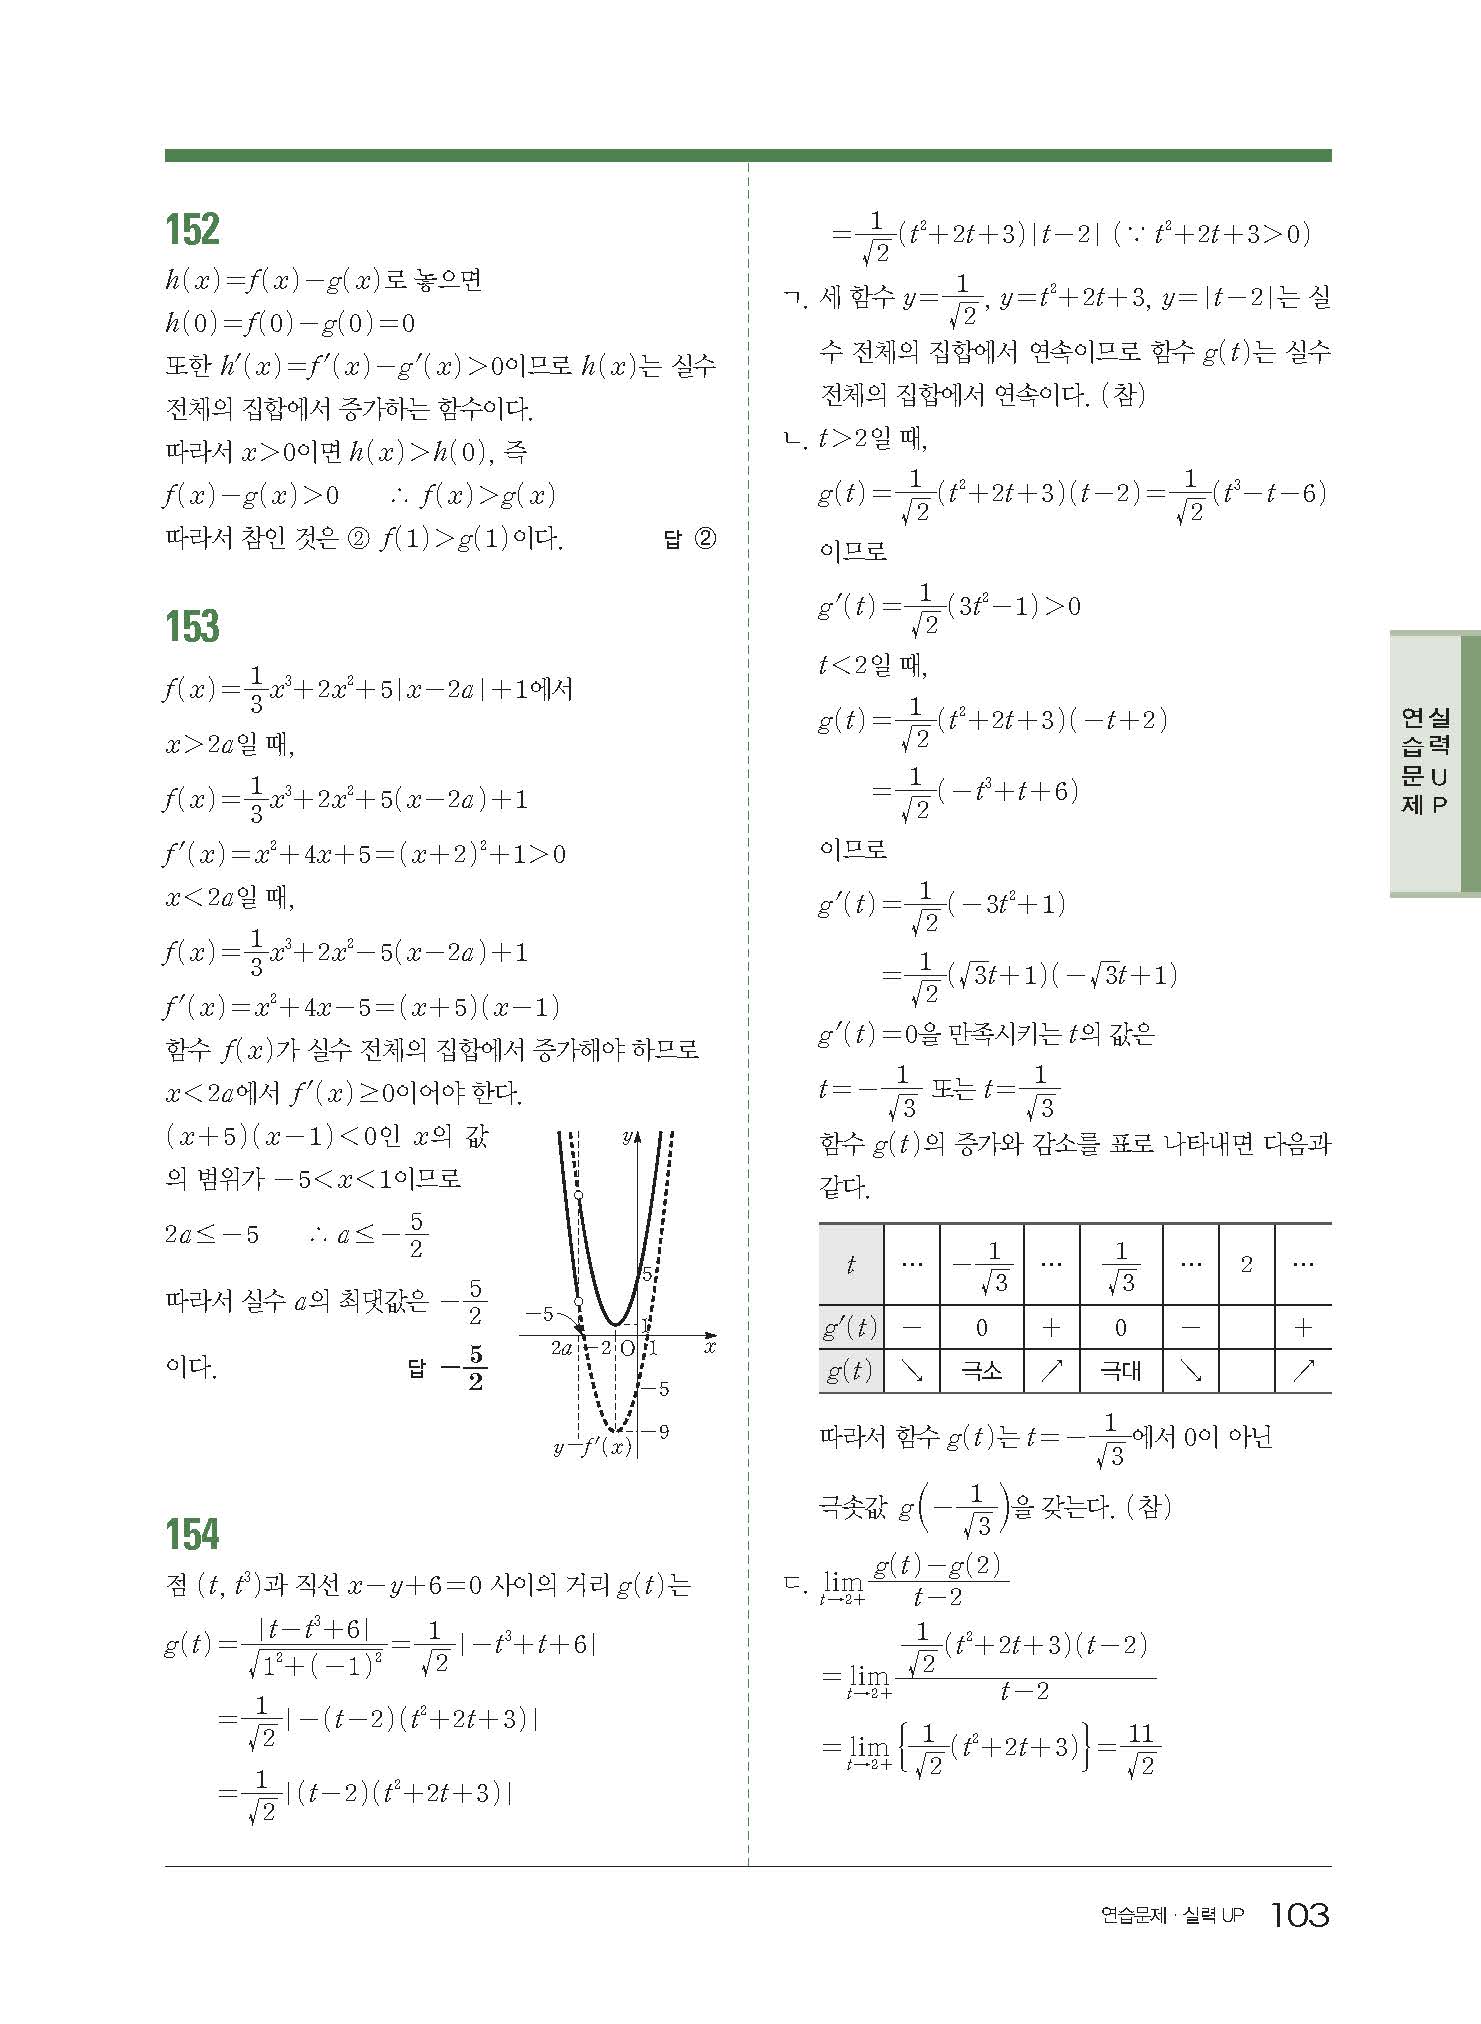 152
h(x)=f(x)-g(x)로 놓으면
h(0)=f(0)-g(0)=0
또한 h′(x)=f′(x)-g′(x)>0이므로 h(x)는 실수
전체의 집합에서 증가하는 함수이다.
따라서 x>0이면 h(x)>h(0), 즉
f(x)-g(x)>0 ∴ f(x)>g(x)
따라서 참인 것은 ② f(1)>g(1)이다. 답 ②
153
f(x)=1/3 x³+2x²+5|x-2a|+1에서
x>2a일 때,
f(x)=1/3 x³+2x²+5(x-2a)+1
f′(x)=x²+4x+5=(x+2)²+1>0
x<2a일 때,
f(x)=1/3 x³+2x²-5(x-2a)+1
f′(x)=x²+4x-5=(x+5)(x-1)
함수 f(x)가 실수 전체의 집합에서 증가해야 하므로
x<2a에서 f′(x)≥0이어야 한다.
(x+5)(x-1)<0인 x의 값
의 범위가 -5<x<1이므로
2a≤-5 ∴ a≤-5/2
따라서 실수 a의 최댓값은 -5/2
이다. 답 -5/2
y
5
-5
1
2a -2 O 1 x
-5
-9
y=f′(x)
154
점 (t, t³)과 직선 x-y+6=0 사이의 거리 g(t)는
g(t)=|t-t³+6|/√(1²+(-1)²)=1/√2 |-t³+t+6|
=1/√2 |-(t-2)(t²+2t+3)|
=1/√2 |(t-2)(t²+2t+3)|
=1/√2 (t²+2t+3)|t-2| (∵ t²+2t+3>0)
ㄱ. 세 함수 y=1/√2, y=t²+2t+3, y=|t-2|는 실
수 전체의 집합에서 연속이므로 함수 g(t)는 실수
전체의 집합에서 연속이다. (참)
ㄴ. t>2일 때,
g(t)=1/√2 (t²+2t+3)(t-2)=1/√2 (t³-t-6)
이므로
g′(t)=1/√2 (3t²-1)>0
t<2일 때,
g(t)=1/√2 (t²+2t+3)(-t+2)
=1/√2 (-t³+t+6)
이므로
g′(t)=1/√2 (-3t²+1)
=1/√2 (√3t+1)(-√3t+1)
g′(t)=0을 만족시키는 t의 값은
t=-1/√3 또는 t=1/√3
함수 g(t)의 증가와 감소를 표로 나타내면 다음과
같다.
t ⋯ -1/√3 ⋯ 1/√3 ⋯ 2 ⋯
g′(t) - 0 + 0 - +
g(t) ↘ 극소 ↗ 극대 ↘ ↗
따라서 함수 g(t)는 t=-1/√3에서 0이 아닌
극솟값 g(-1/√3)을 갖는다. (참)
ㄷ. lim t→2+ (g(t)-g(2))/(t-2)
=lim t→2+ (1/√2 (t²+2t+3)(t-2))/(t-2)
=lim t→2+ {1/√2 (t²+2t+3)}=11/√2
연습문제
실력 UP
연습문제·실력 UP 103